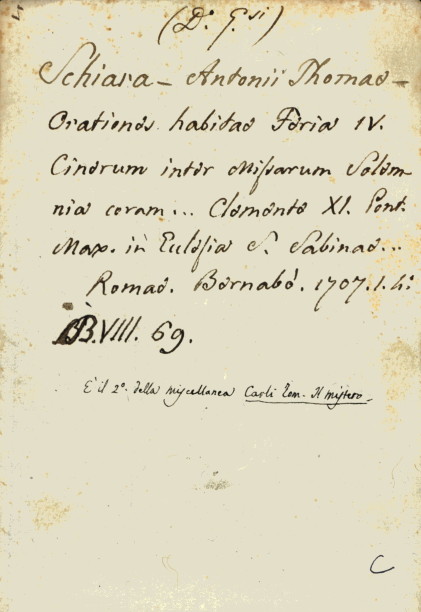 (D. G.si)
Schiara - Antonii Thomae -
Orationes habitae Feria IV.
Cinerum inter Missarum Solem
nia coram... Clemente XI. Pont.
Max. in Eclesia S. Sabinae...
Romae. Bernabò. 1707. 1. 4:
B.VIII. 69.
È il 2º. della miscellanea Carli Tom. Il mistero -
C